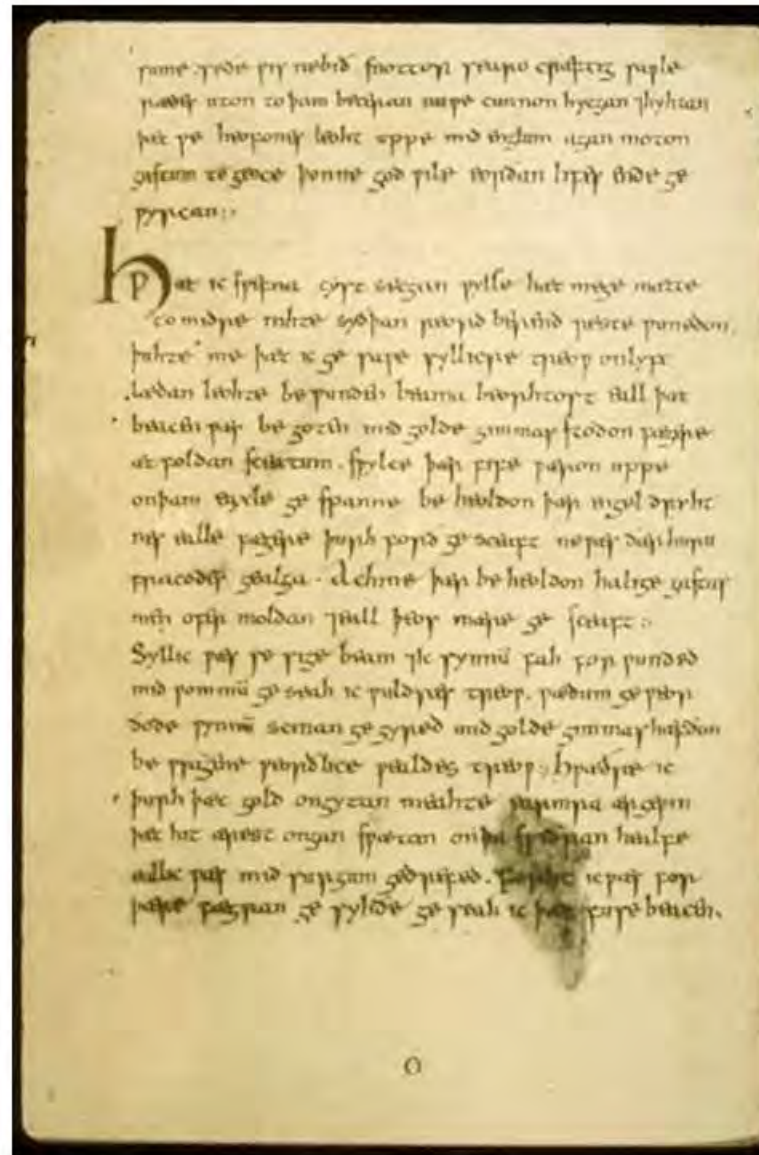 sume. seðe wis nebið snottor searu cræftig sawle
rædes uton to þam beteran nuwe cunnon hycgan ⁊hyhtan
þæt we heofones leoht uppe mid englum agan moton
gastum to geoce þonne god wile eorðan lifes ende ge
wyrcan :,
Hwæt ic swefna cyst secgan wylle hæt mege mætte
to midre nihte syðþan reord berend reste wunedon.
þuhte me þæt ic ge sawe syllicre treow onlyft
lædan leohte be wunden beama beorhtost eall þæt
beacen wæs be goten mid golde gimmas stodon fægere
æt foldan sceatum. swylce þær fife wæron uppe
onþam eaxle ge spanne be heoldon þær engel dryhtnes
ealle fægere þurh forð ge sceaft ne wæs ðær huru
fracodes gealga. Ac hine þær be heoldon halige gastas
men ofer moldan ⁊eall þeos mære ge sceaft :,
Syllic wæs se sige beam ⁊ic synnū fah for wunded
mid wommū ge seah ic wuldres treow. wædum ge weor
ðode wynnū scinan ge gyred mid golde gimmas hæfdon
be wrigene weorðlice wealdes treow ; hwæðre ic
þurh þæt gold ongytan meahte earmra ærgewin
þæt hit ærest ongan swætan onþa swiðran healfe
eall ic wæs mid sorgum gedrefed. forht ic wæs for
þære fægran ge syhðe ge seah ic þæt fuse beacen.